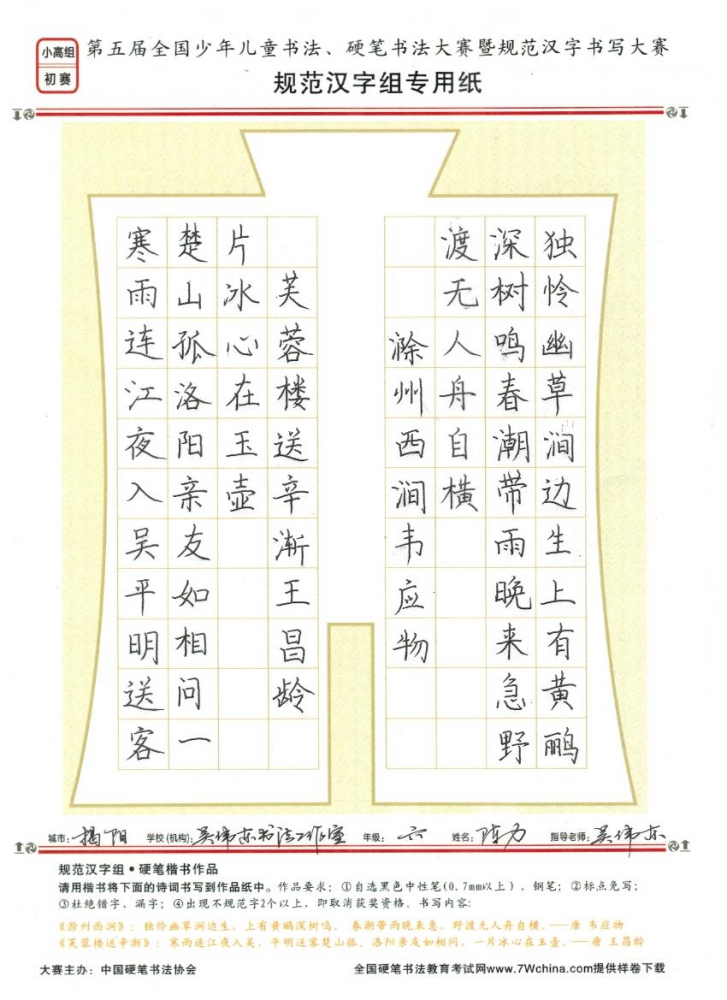 小高组
初赛
第五届全国少年儿童书法、硬笔书法大赛暨规范汉字书写大赛
规范汉字组专用纸
独怜幽草涧边生上有黄鹂
深树鸣春潮带雨晚来急野
渡无人舟自横
滁州西涧韦应物
寒雨连江夜入吴平明送客
楚山孤洛阳亲友如相问一
片冰心在玉壶
芙蓉楼送辛渐王昌龄
城市：揭阳 学校(机构)：吴伟东书法工作室 年级：六 姓名：陈力 指导老师：吴伟东
规范汉字组•硬笔楷书作品
请用楷书将下面的诗词书写到作品纸中。作品要求：①自选黑色中性笔(0.7mm以上)、钢笔；②标点免写；
③杜绝错字，漏字；④出现不规范字2个以上，即取消获奖资格。书写内容：
《滁州西涧》：独怜幽草涧边生，上有黄鹂深树鸣。 春潮带雨晚来急，野渡无人舟自横。——唐 韦应物
《芙蓉楼送辛渐》：寒雨连江夜入吴，平明送客楚山孤。洛阳亲友如相问，一片冰心在玉壶。——唐 王昌龄
大赛主办：中国硬笔书法协会 全国硬笔书法教育考试网www.7Wchina.com提供样卷下载